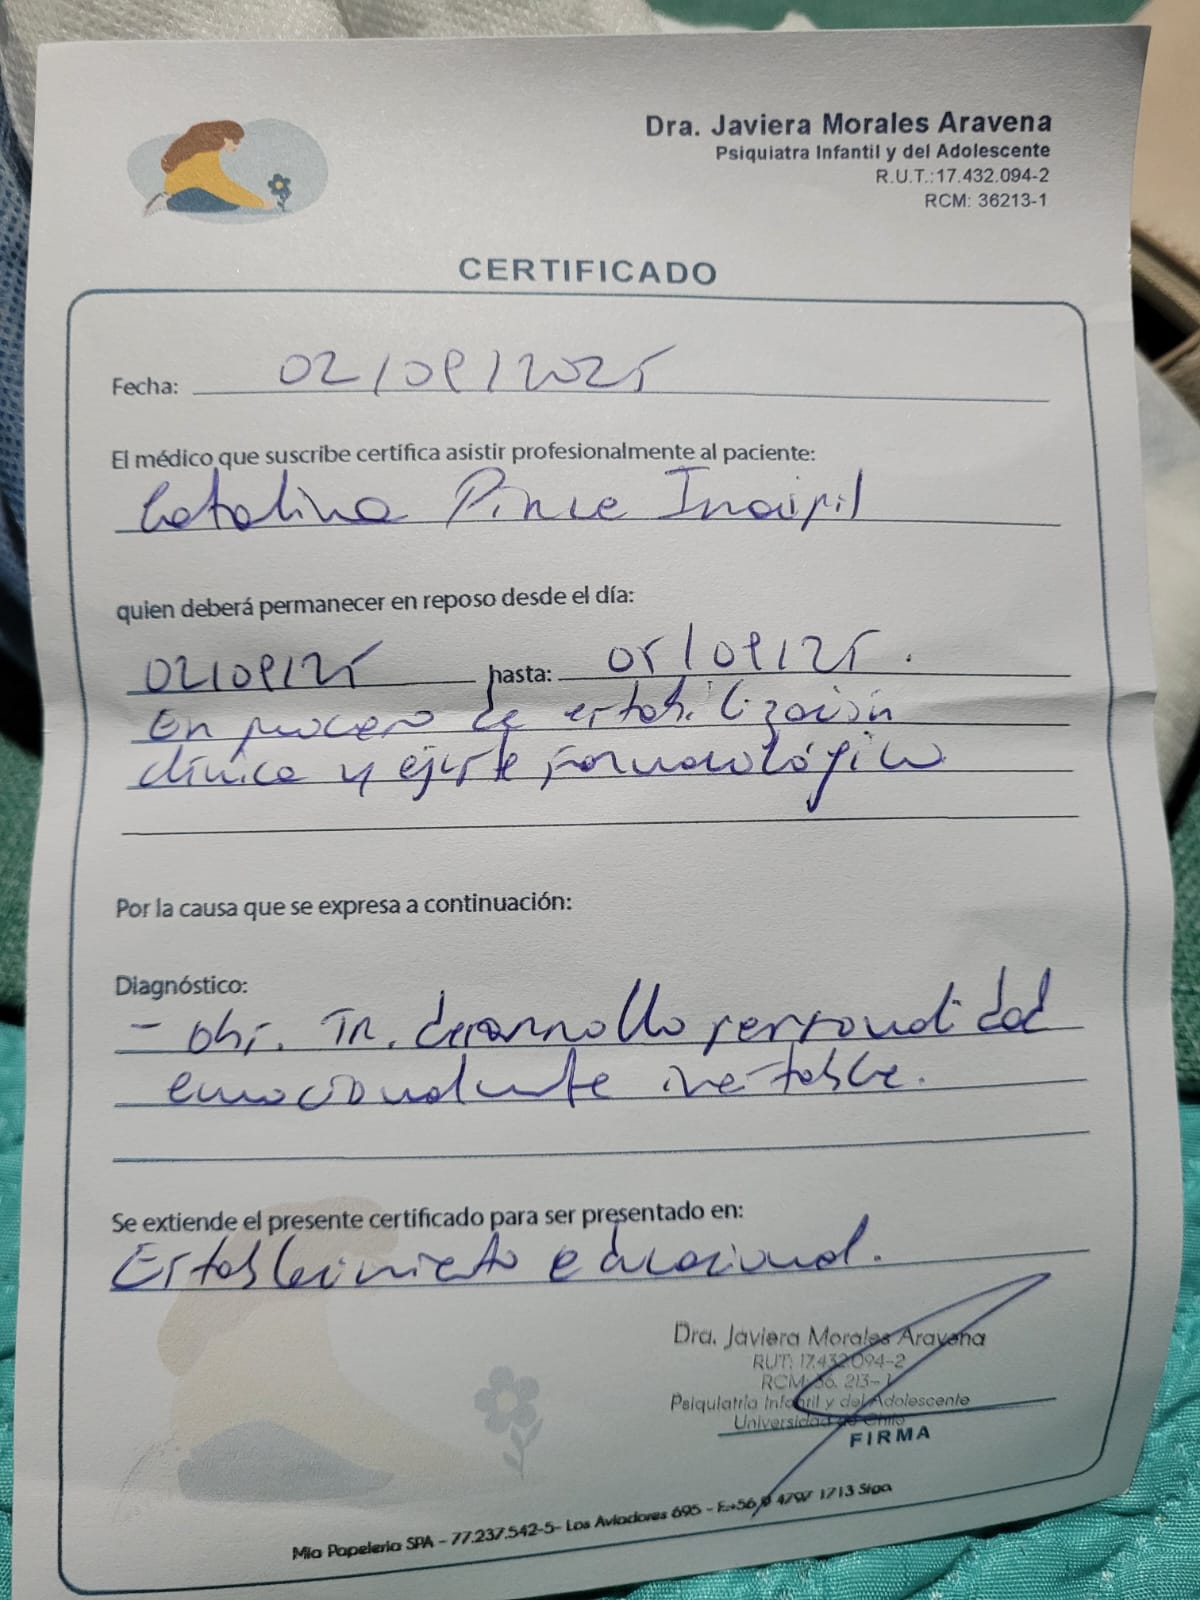 Dra. Javiera Morales Aravena
Psiquiatra Infantil y del Adolescente
R.U.T.:17.432.094-2
RCM: 36213-1
CERTIFICADO
Fecha: 02/09/2025
El médico que suscribe certifica asistir profesionalmente al paciente:
Catalina Inaipil
quien deberá permanecer en reposo desde el día:
02/09/25 hasta: 05/09/25.
En proceso de estabilización
clínica y ajuste farmacológico
Por la causa que se expresa a continuación:
Diagnóstico:
- Obs. Tr. desarrollo personalidad
emocionalmente inestable.
Se extiende el presente certificado para ser presentado en:
Establecimiento educacional.
Dra. Javiera Morales Aravena
RUT: 17.432.094-2
RCM: 36. 213-1
Psiquiatría Infantil y del Adolescente
Universidad de Chile
FIRMA
Mia Papeleria SPA - 77.237.542-5- Los Aviadores 695 - F:+56 9 4797 1713 Stgo.